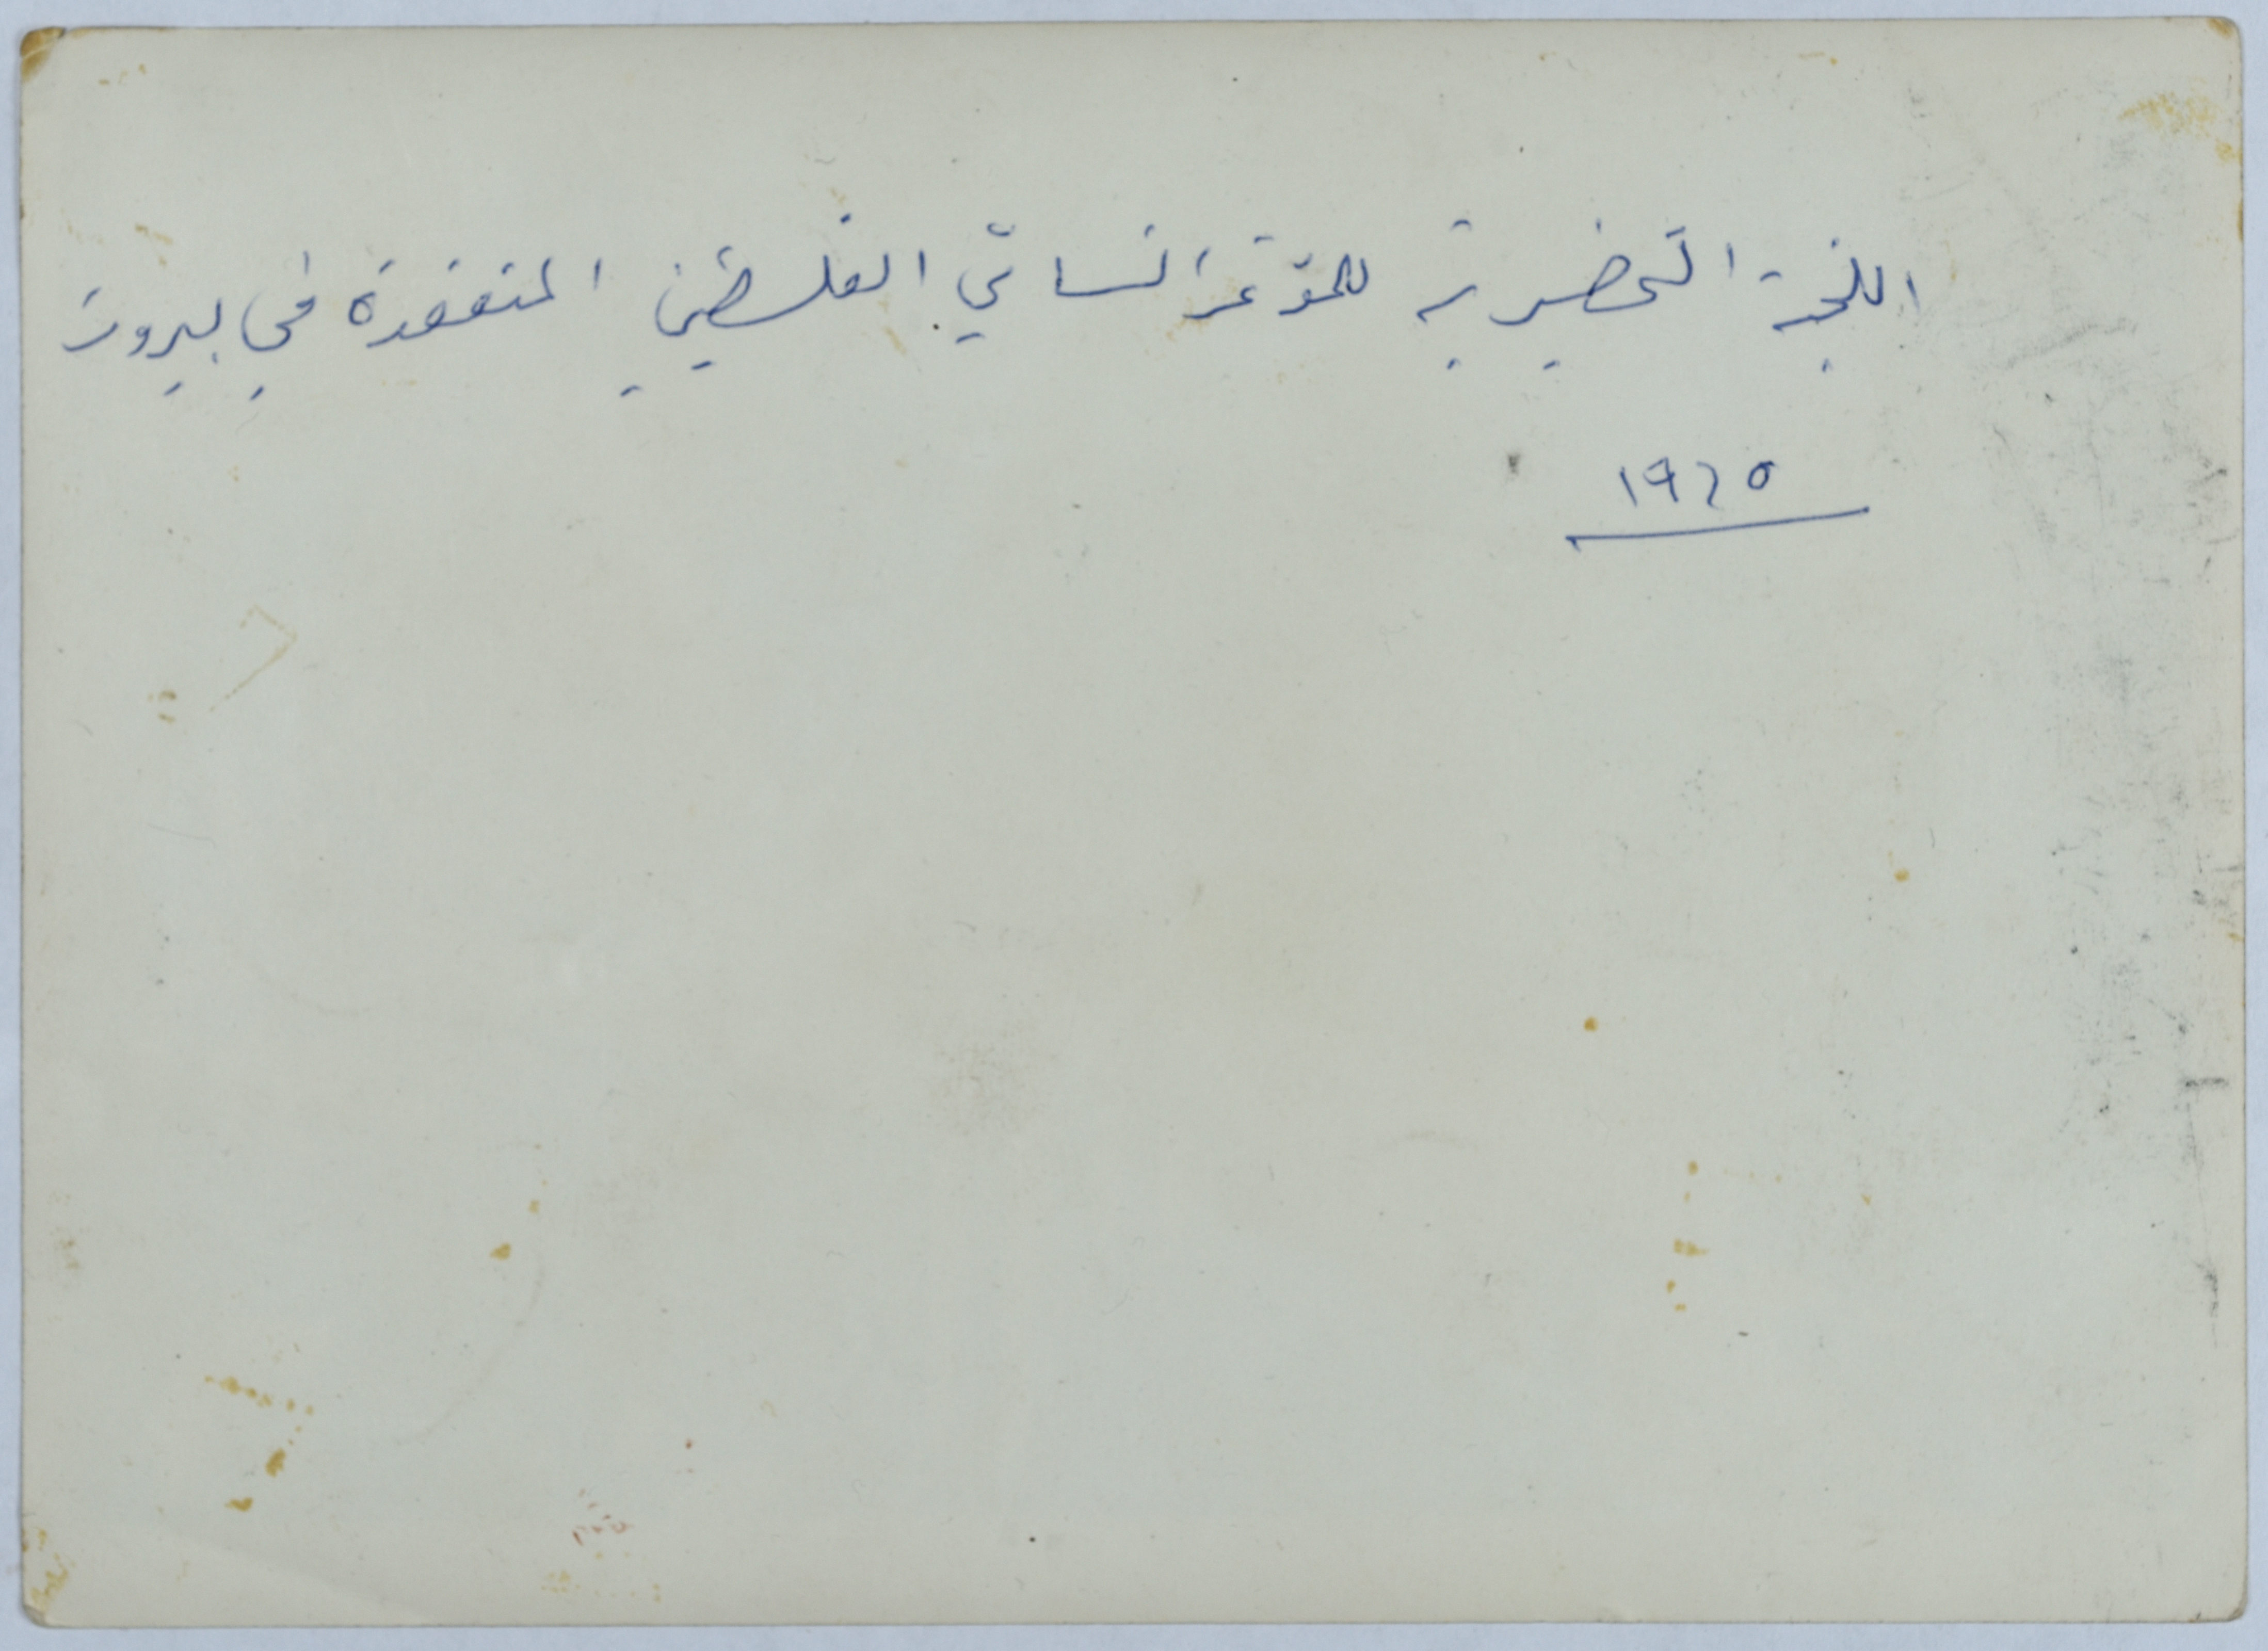 اللجنة التحضيرية للمؤتمر النسائي الفلسطيني المنعقدة في بيروت
١٩٦٥